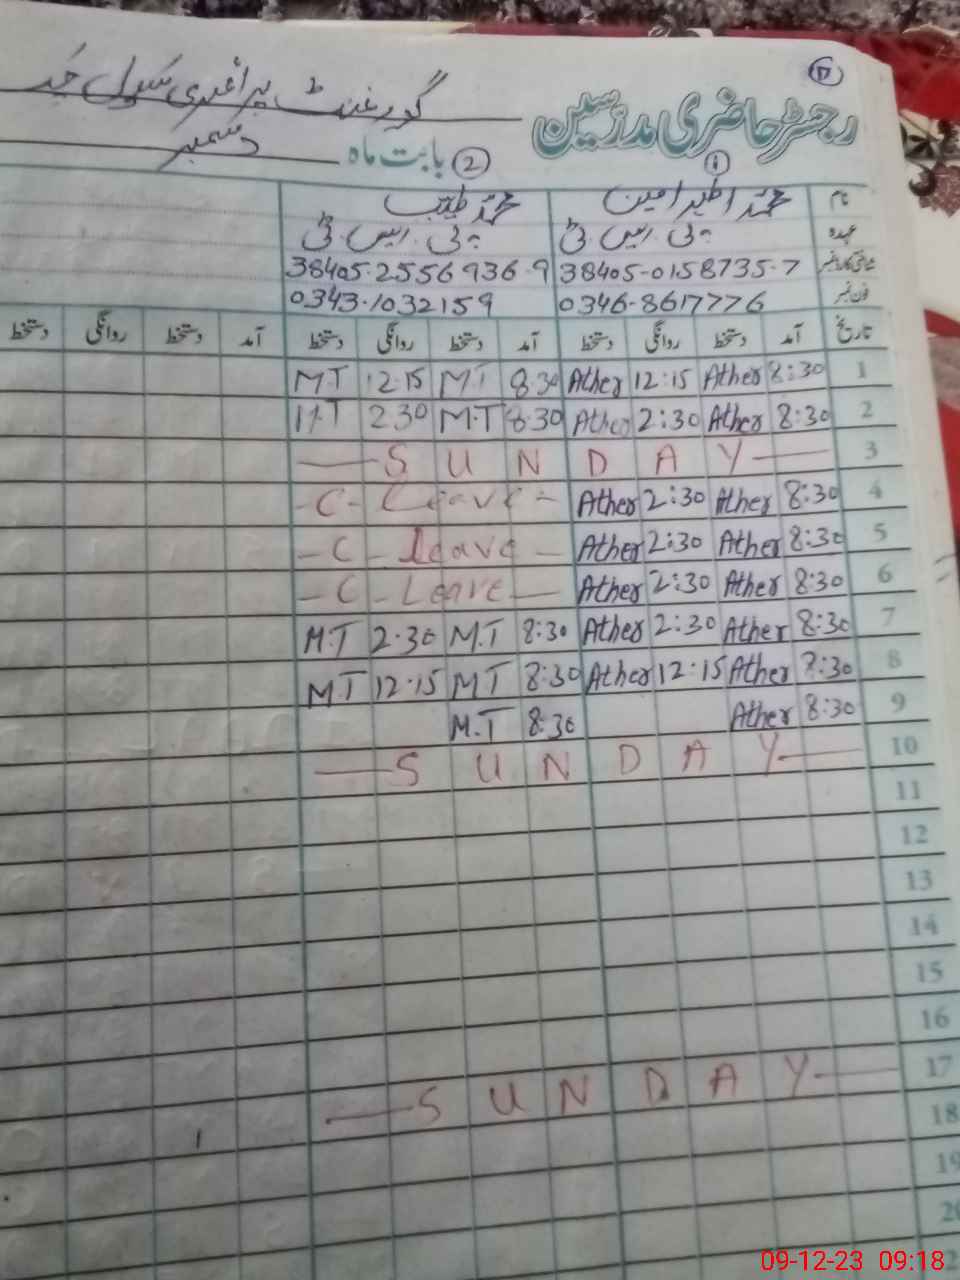 17
رجسٹر حاضری مدرسین گورنمنٹ پرائمری سکول
بابت ماہ دسمبر
1 2
نام محمد اطہر امین محمد طیب
عہدہ پی۔ایس۔ٹی پی۔ایس۔ٹی
شناختی کارڈ نمبر 38405-0158735-7 38405-2556936-9
فون نمبر 0346-8617776 0343-1032159
تاریخ آمد دستخط روانگی دستخط آمد دستخط روانگی دستخط آمد دستخط روانگی دستخط
1 8:30 Ather 12:15 Ather 8:30 M.T 12:15 M.T
2 8:30 Ather 2:30 Ather 8:30 M.T 2:30 M.T
3 SUNDAY
4 8:30 Ather 2:30 Ather C-Leave
5 8:30 Ather 2:30 Ather C-leave
6 8:30 Ather 2:30 Ather C-Leave
7 8:30 Ather 2:30 Ather 8:30 M.T 2:30 M.T
8 8:30 Ather 12:15 Ather 8:30 M.T 12:15 M.T
9 8:30 Ather 8:30 M.T
10 SUNDAY
11
12
13
14
15
16
17 SUNDAY
18
19
20
09-12-23 09:18